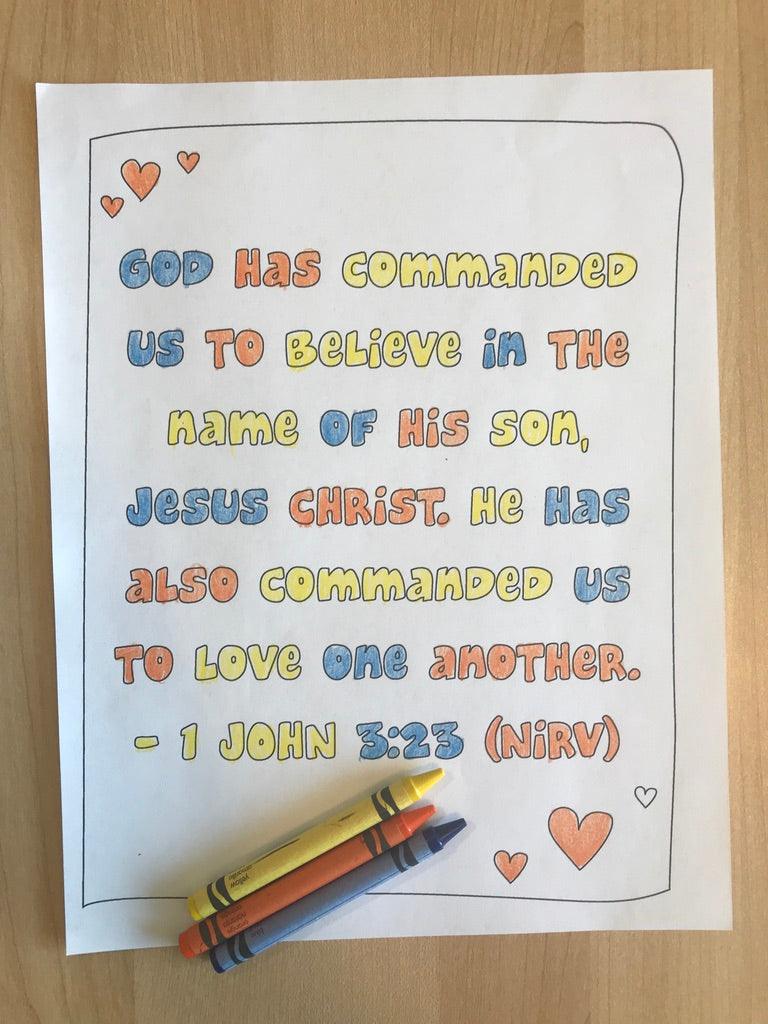 GOD Has commanDeD
us TO BeLieve in THe
name OF His son,
Jesus CHRisT. He Has
aLso commanDeD us
TO Love one anoTHeR.
- 1 JOHN 3:23 (NiRV)
yellow
amarillo
orange
naranja
blue